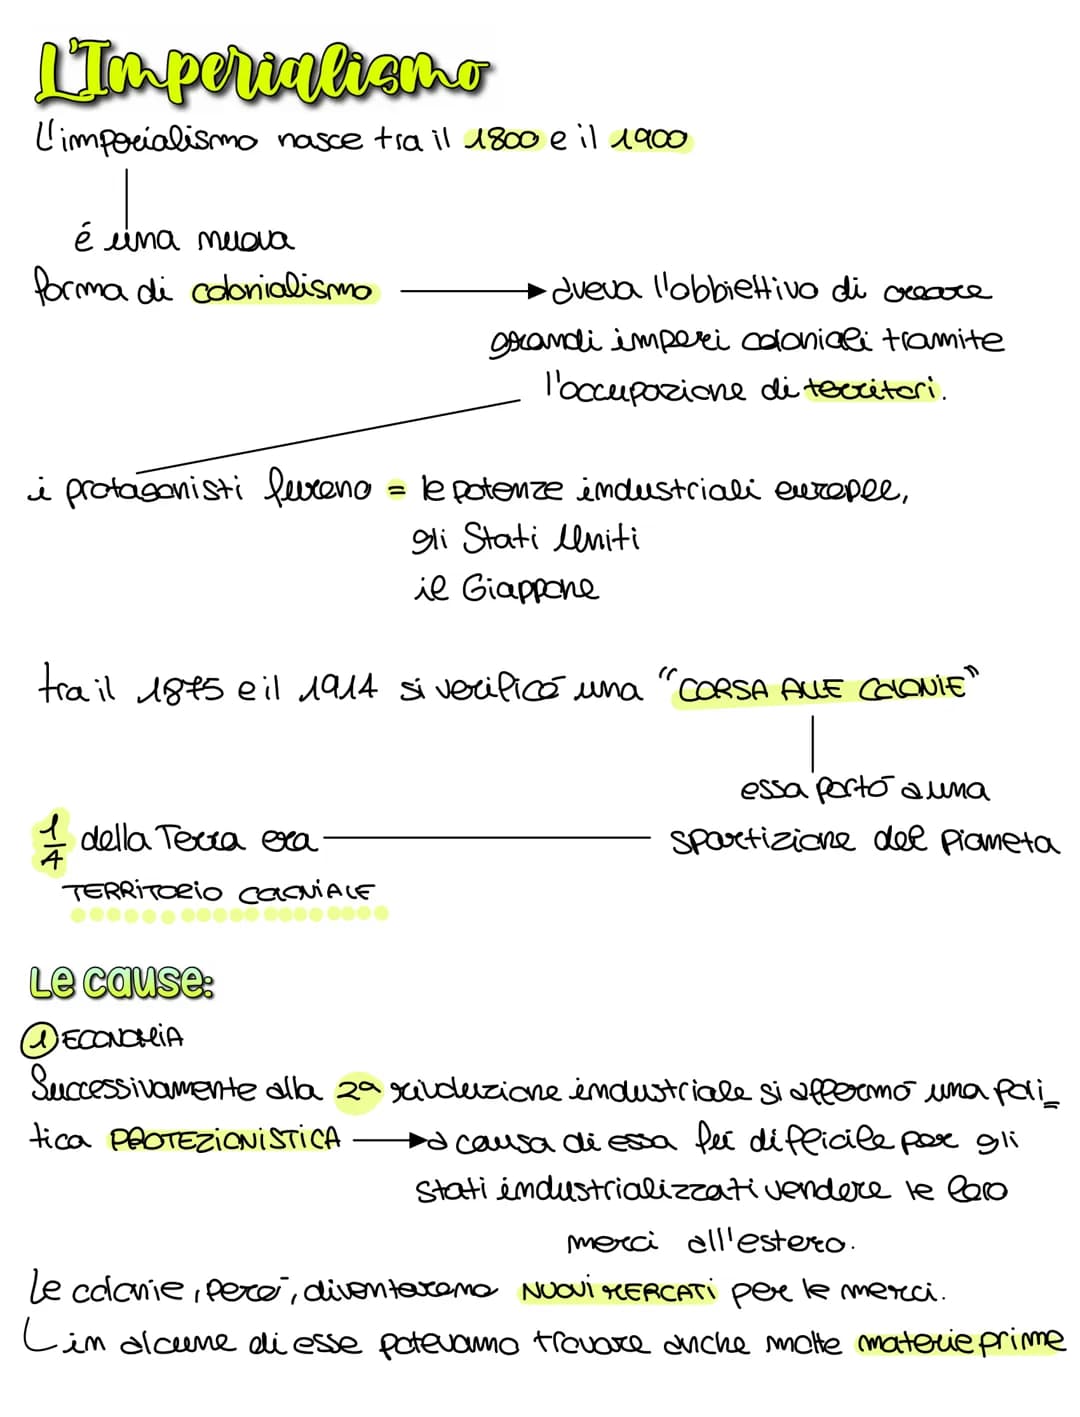 L'Imperialismo
L'imperialismo nasce tra il 1800 e il 1900
é una nuova
forma di colonialismo
aveva l'obbiettivo di creare
grandi imperi coloniali tramite
l'occupazione di territori.
i protagonisti furono = le potenze industriali europee,
gli Stati Uniti
il Giappone
tra il 1875 e il 1914 si verificó una "CORSA ALLE COLONIE"
essa portó a una
1/4 della Terra era
spartizione del pianeta
TERRITORIO COLONIALE
Le cause:
1 ECONOMIA
Successivamente alla 2a rivoluzione industriale si affermó una poli_
tica PROTEZIONISTICA
a causa di essa fu difficile per gli
Stati industrializzati vendere le loro
merci all'estero.
Le colonie, peró, diventarono NUOVI MERCATI per le merci.
in alcune di esse potevano trovare anche molte materie prime